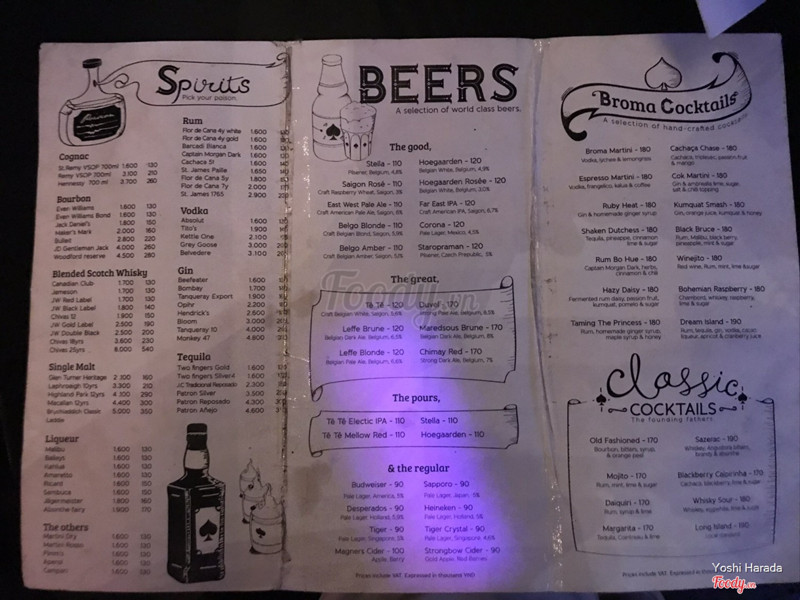 Spirits
Pick your poison.
Cognac
St.Remy VSOP 700ml 1.600 130
Remy VSOP 700ml 3.100 210
Hennessy 700 ml 3.700 260
Bourbon
Evan Williams 1.600 130
Evan Williams Bond 1.600 130
Jack Daniel's 1.800 150
Maker's Mark 2.000 160
Bulleit 2.800 220
JD Gentleman Jack 4.000 260
Woodford reserve 4.500 280
Blended Scotch Whisky
Canadian Club 1.700 130
Jameson 1.700 130
JW Red Label 1.700 130
JW Black Label 1.800 140
Chivas 12 1.900 150
JW Gold Label 2.500 190
JW Double Black 2.500 200
Chivas 18yrs 3.600 230
Chivas 25yrs 8.000 540
Single Malt
Glen Turner Heritage 2.100 160
Laphroaigh 10yrs 3.300 210
Highland Park 12yrs 4.300 290
Macallan 12yrs 4.400 300
Bruichladdich Classic 5.000 350
Laddie
Liqueur
Malibu 1.600 130
Baileys 1.600 130
Kahlua 1.600 130
Amaretto 1.600 130
Ricard 1.600 150
Sambuca 1.600 150
Jägermeister 1.800 160
Absinthe fairy 1.900 170
The others
Martini Dry 1.600 130
Martini Rosso 1.600 130
Pimm's 1.600 130
Aperol 1.600 130
Campari 1.600 130
Rum
Flor de Cana 4y white 1.600
Flor de Cana 4y gold 1.600
Barcadi Blanca 1.600
Captain Morgan Dark 1.600
Cachaca 51 1.600
St. James Paille 1.650
Flor de Cana 5y 1.800
Flor de Cana 7y 2.000
St. James 1765 2.900
Vodka
Absolut 1.600
Tito's 1.900
Kettle One 2.100
Grey Goose 3.000
Belvedere 3.100
Gin
Beefeater 1.600
Bombay 1.700
Tanqueray Export 1.900
Opihr 2.200
Hendrick's 2.600
Bloom 3.000
Tanqueray 10 4.000
Monkey 47 4.800
Tequila
Two fingers Gold 1.600
Two fingers Silver 1.600
J.C Tradicional Reposado 2.300
Patron Silver 3.500
Patron Reposado 4.300
Patron Añejo 4.600
BEERS
A selection of world class beers.
The good,
Stella - 110
Pilsener, Belgium, 4,8%
Hoegaarden - 120
Belgian White, Belgium, 4,9%
Saigon Rosé - 110
Craft Raspberry Wheat, Saigon, 3%
Hoegaarden Rosée - 120
Belgian White, Belgium, 3,0%
East West Pale Ale - 110
Craft American Pale Ale, Saigon, 6%
Far East IPA - 120
Craft American IPA, Saigon, 6,7%
Belgo Blonde - 110
Craft Belgian Blond, Saigon, 5,9%
Corona - 120
Pale Lager, Mexico, 4,5%
Belgo Amber - 110
Craft Belgian Amber, Saigon, 5,1%
Staropraman - 120
Pilsener, Czech Prepublic, 5%
The great,
Tê Tê - 120
Craft Belgian White, Saigon, 5,6%
Duvel - 170
Strong Pale Ale, Belgium, 8,5%
Leffe Brune - 120
Belgian Dark Ale, Belgium, 6,5%
Maredsious Brune - 170
Belgian Dark Ale, Belgium, 8%
Leffe Blonde - 120
Belgian Pale Ale, Belgium, 6,6%
Chimay Red - 170
Strong Dark Ale, Belgium, 7%
The pours,
Tê Tê Electic IPA - 110
Stella - 110
Tê Tê Mellow Red - 110
Hoegaarden - 110
& the regular
Budweiser - 90
Pale Lager, America, 5%
Sapporo - 90
Pale Lager, Japan, 5%
Desperados - 90
Pale Lager, Holland, 5,9%
Heineken - 90
Pale Lager, Holland, 5%
Tiger - 90
Pale Lager, Singapore, 5%
Tiger Crystal - 90
Pale Lager, Singapore, 4,6%
Magners Cider - 100
Apple, Berry
Strongbow Cider - 90
Gold Apple, Red Berries
Prices include VAT. Expressed in thousand VND
Broma Cocktails
A selection of hand-crafted cocktails
Broma Martini - 180
Vodka, lychee & lemongrass
Cachaça Chase - 180
Cachaca, triplesec, passion fruit
& mango
Espresso Martini - 190
Vodka, frangelico, kalua & coffee
Cok Martini - 180
Gin & ambrella lime, sugar,
salt & chili topping
Ruby Heat - 180
Gin & homemade ginger syrup
Kumquat Smash - 180
Gin, orange juice, kumquat & honey
Shaken Dutchess - 180
Tequila, pineapple, cinnamon
lime & sugar
Black Bruce - 180
Rum, Malibu, black berry,
pineapple, mint & sugar
Rum Bo Hue - 180
Captain Morgan Dark, herbs,
cinnamon & chili
Winejito - 180
Red wine, Rum, mint, lime & sugar
Hazy Daisy - 180
Fermented rum daisy, passion fruit,
kumquat, pomelo & sugar
Bohemian Raspberry - 180
Chambord, whiskey, raspberry,
lime & sugar
Taming The Princess - 180
Rum, homemade ginger syrup,
maple syrup & honey
Dream Island - 190
Rum, tequila, gin, vodka, cacan
liqueur, apricot & cranberry juice
classic
COCKTAILS
The founding fathers
Old Fashioned - 170
Bourbon, bitters, syrup,
& orange peel
Sazerac - 190
Whiskey, Angostura bitters,
brandy & absinthe
Mojito - 170
Rum, mint, lime & sugar
Blackberry Caipirinha - 170
Cachaca, blackberry, lime & sugar
Daiquiri - 170
Rum, syrup & lime
Whisky Sour - 180
Whiskey, eggwhite, lime & sugar
Margarita - 170
Tequila, Cointreau & lime
Long Island - 190
Prices include VAT. Expressed in thousand
Foody.vn
Yoshi Harada
Foody.vn